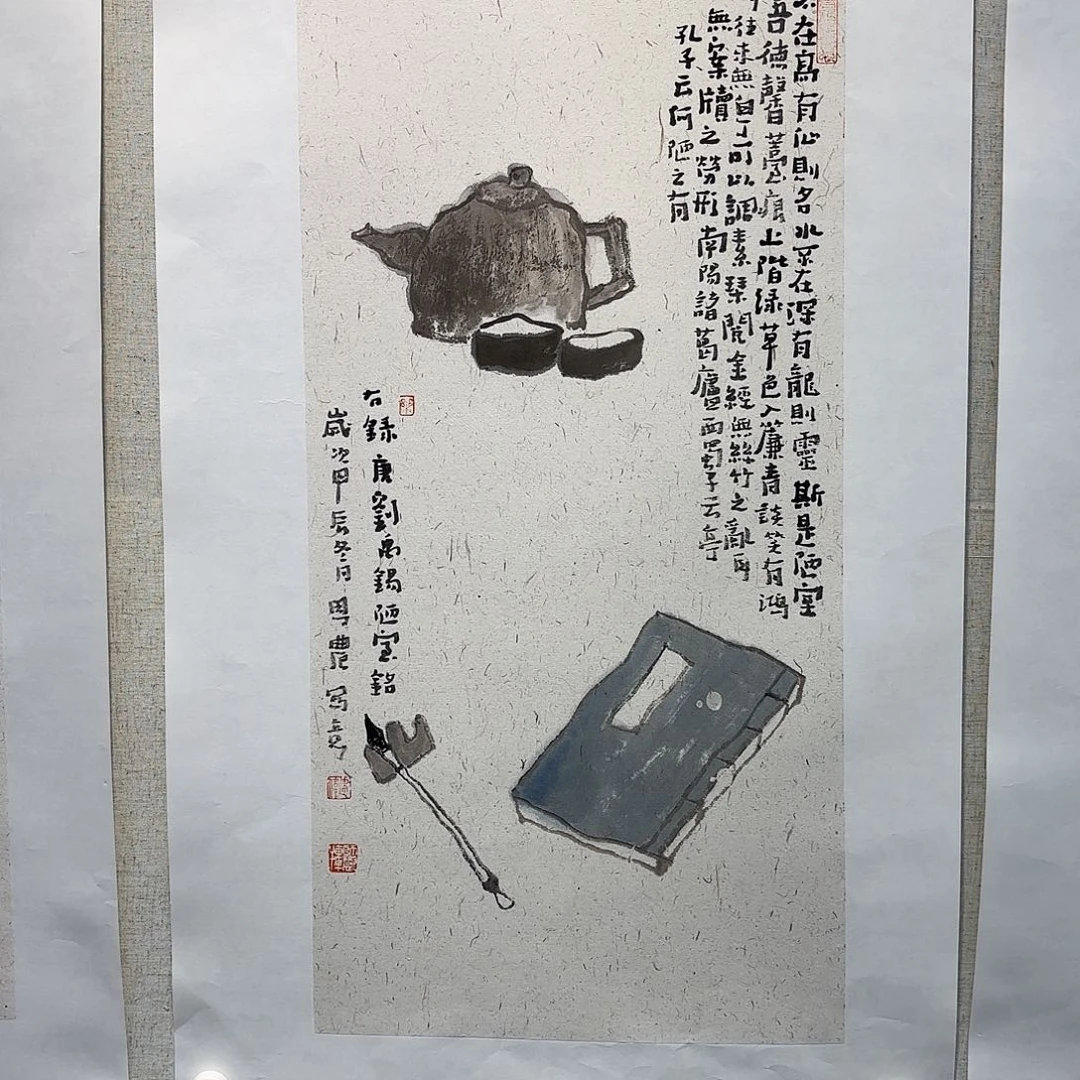 在高有仙則名水不在深有龍則靈斯是陋室
吾德馨薹痕上階绿草色入簾青談笑有鴻
往来無白丁可以調素琴閱金經無絲竹之亂耳
無案牘之勞形南陽諸葛廬西蜀子云亭
孔子云何陋之有
右録唐劉禹錫陋室銘
歲次甲辰冬月農寫意